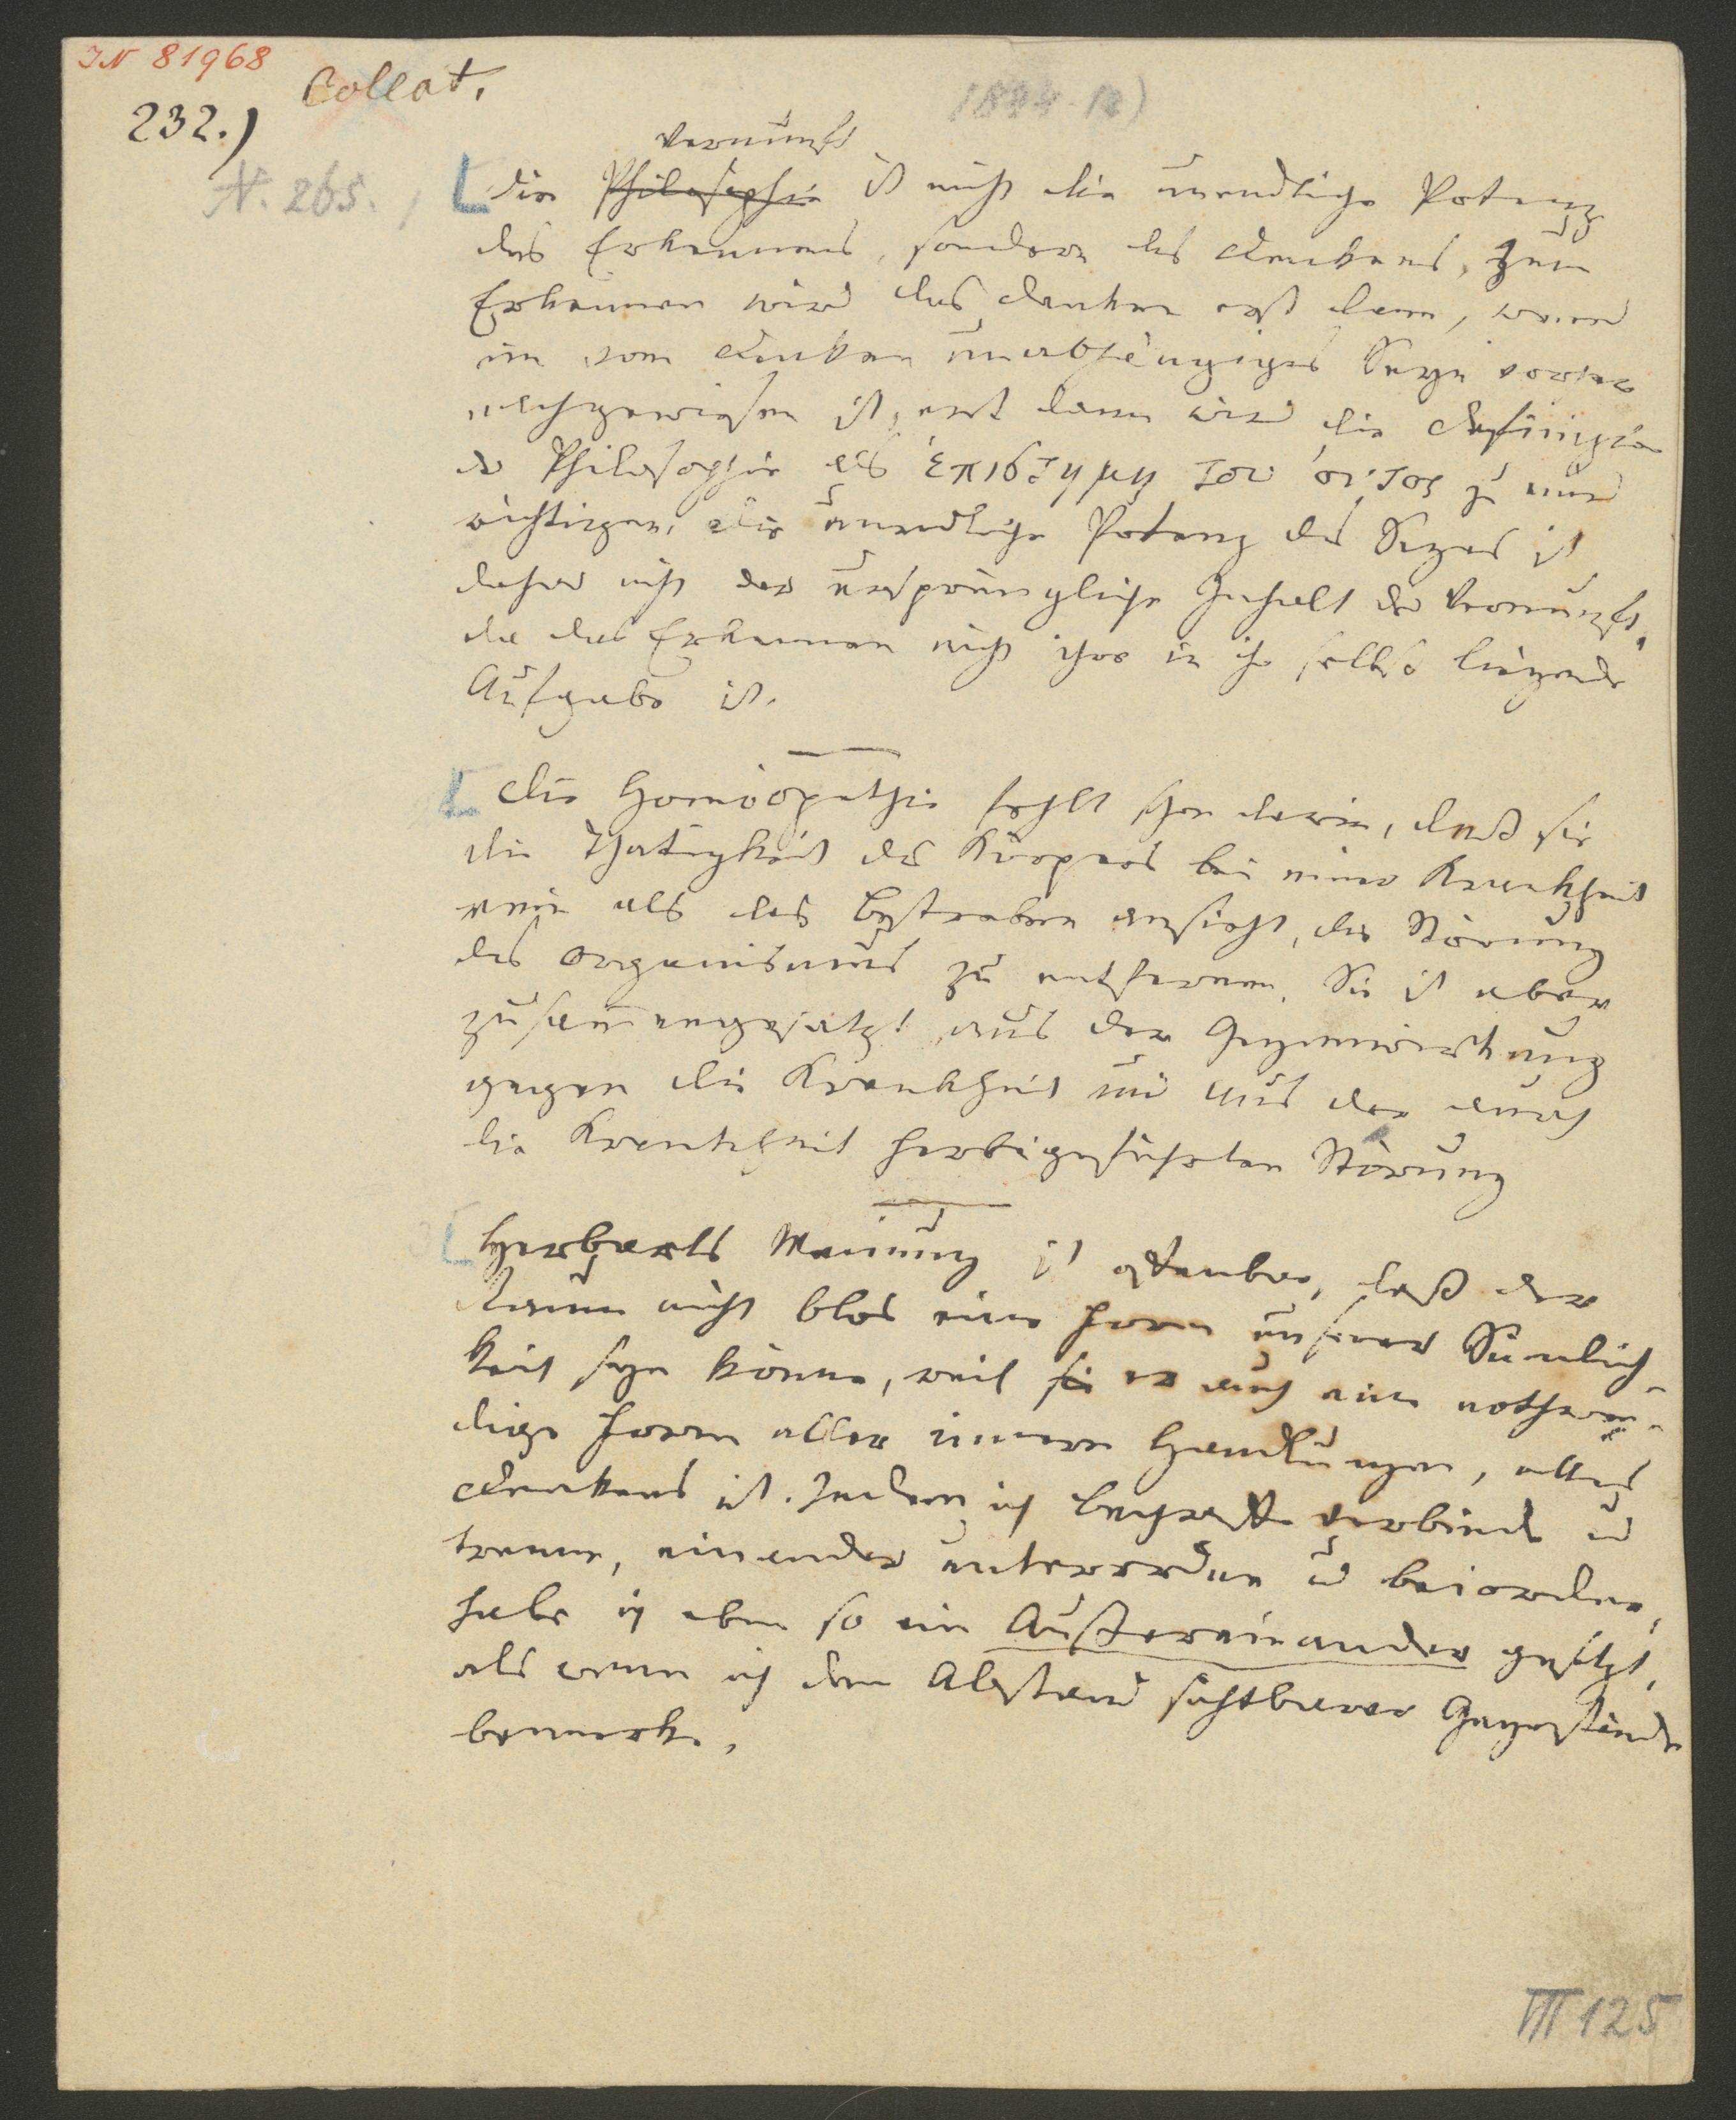 IN 81968
Collat.
232.)
N. 265.
Vernunft
Die Philosophie ist nicht die unendliche Potenz
des Erkennens, sondern des Denkens. Zum
Erkennen wird das Denken erst dann, wenn
ein vom Denken unabhängiges Seyn vorher
nachgewiesen ist, erst dann wird die Definizion
der Philosophie als ἐπιστημη του ὀντος zu einer
richtigen. Die unendliche Potenz des Seyns ist
daher nicht der ursprüngliche Inhalt der Vernunft,
da das Erkennen nicht ihre in ihr selbst liegende
Aufgabe ist.
Die Homöopathie fehlt schon darin, daß sie
die Thätigkeit des Körpers bei einer Krankheit
rein als das Bestreben ansieht, die Störung
des Organismus zu entfernen. Sie ist aber
zusammengesetzt aus der Gegenwirkung
gegen die Krankheit und aus der durch
die Krankheit herbeigeführten Störung
Herbarts Meinung ist offenbar, daß der
Raum nicht blos eine Form unserer Sinnlich-
keit seyn könne, weil sie er auch eine nothwen-
dige Form aller innern Handlungen, alles
Denkens ist. Indem ich Begriffe verbinde u
trenne, einander unterordne u beiordne,
habe ich eben so ein Außereinander gesetzt,
als wenn ich den Abstand sichtbarer Gegenstände
bemerke.
VIII 125